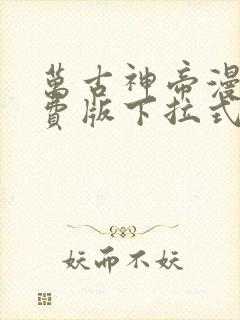 萬古神帝漫
費版下拉式
妖而不妖